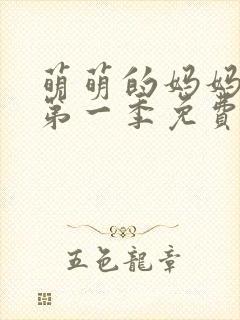 萌萌的妈妈
第一季免費
五色龍章